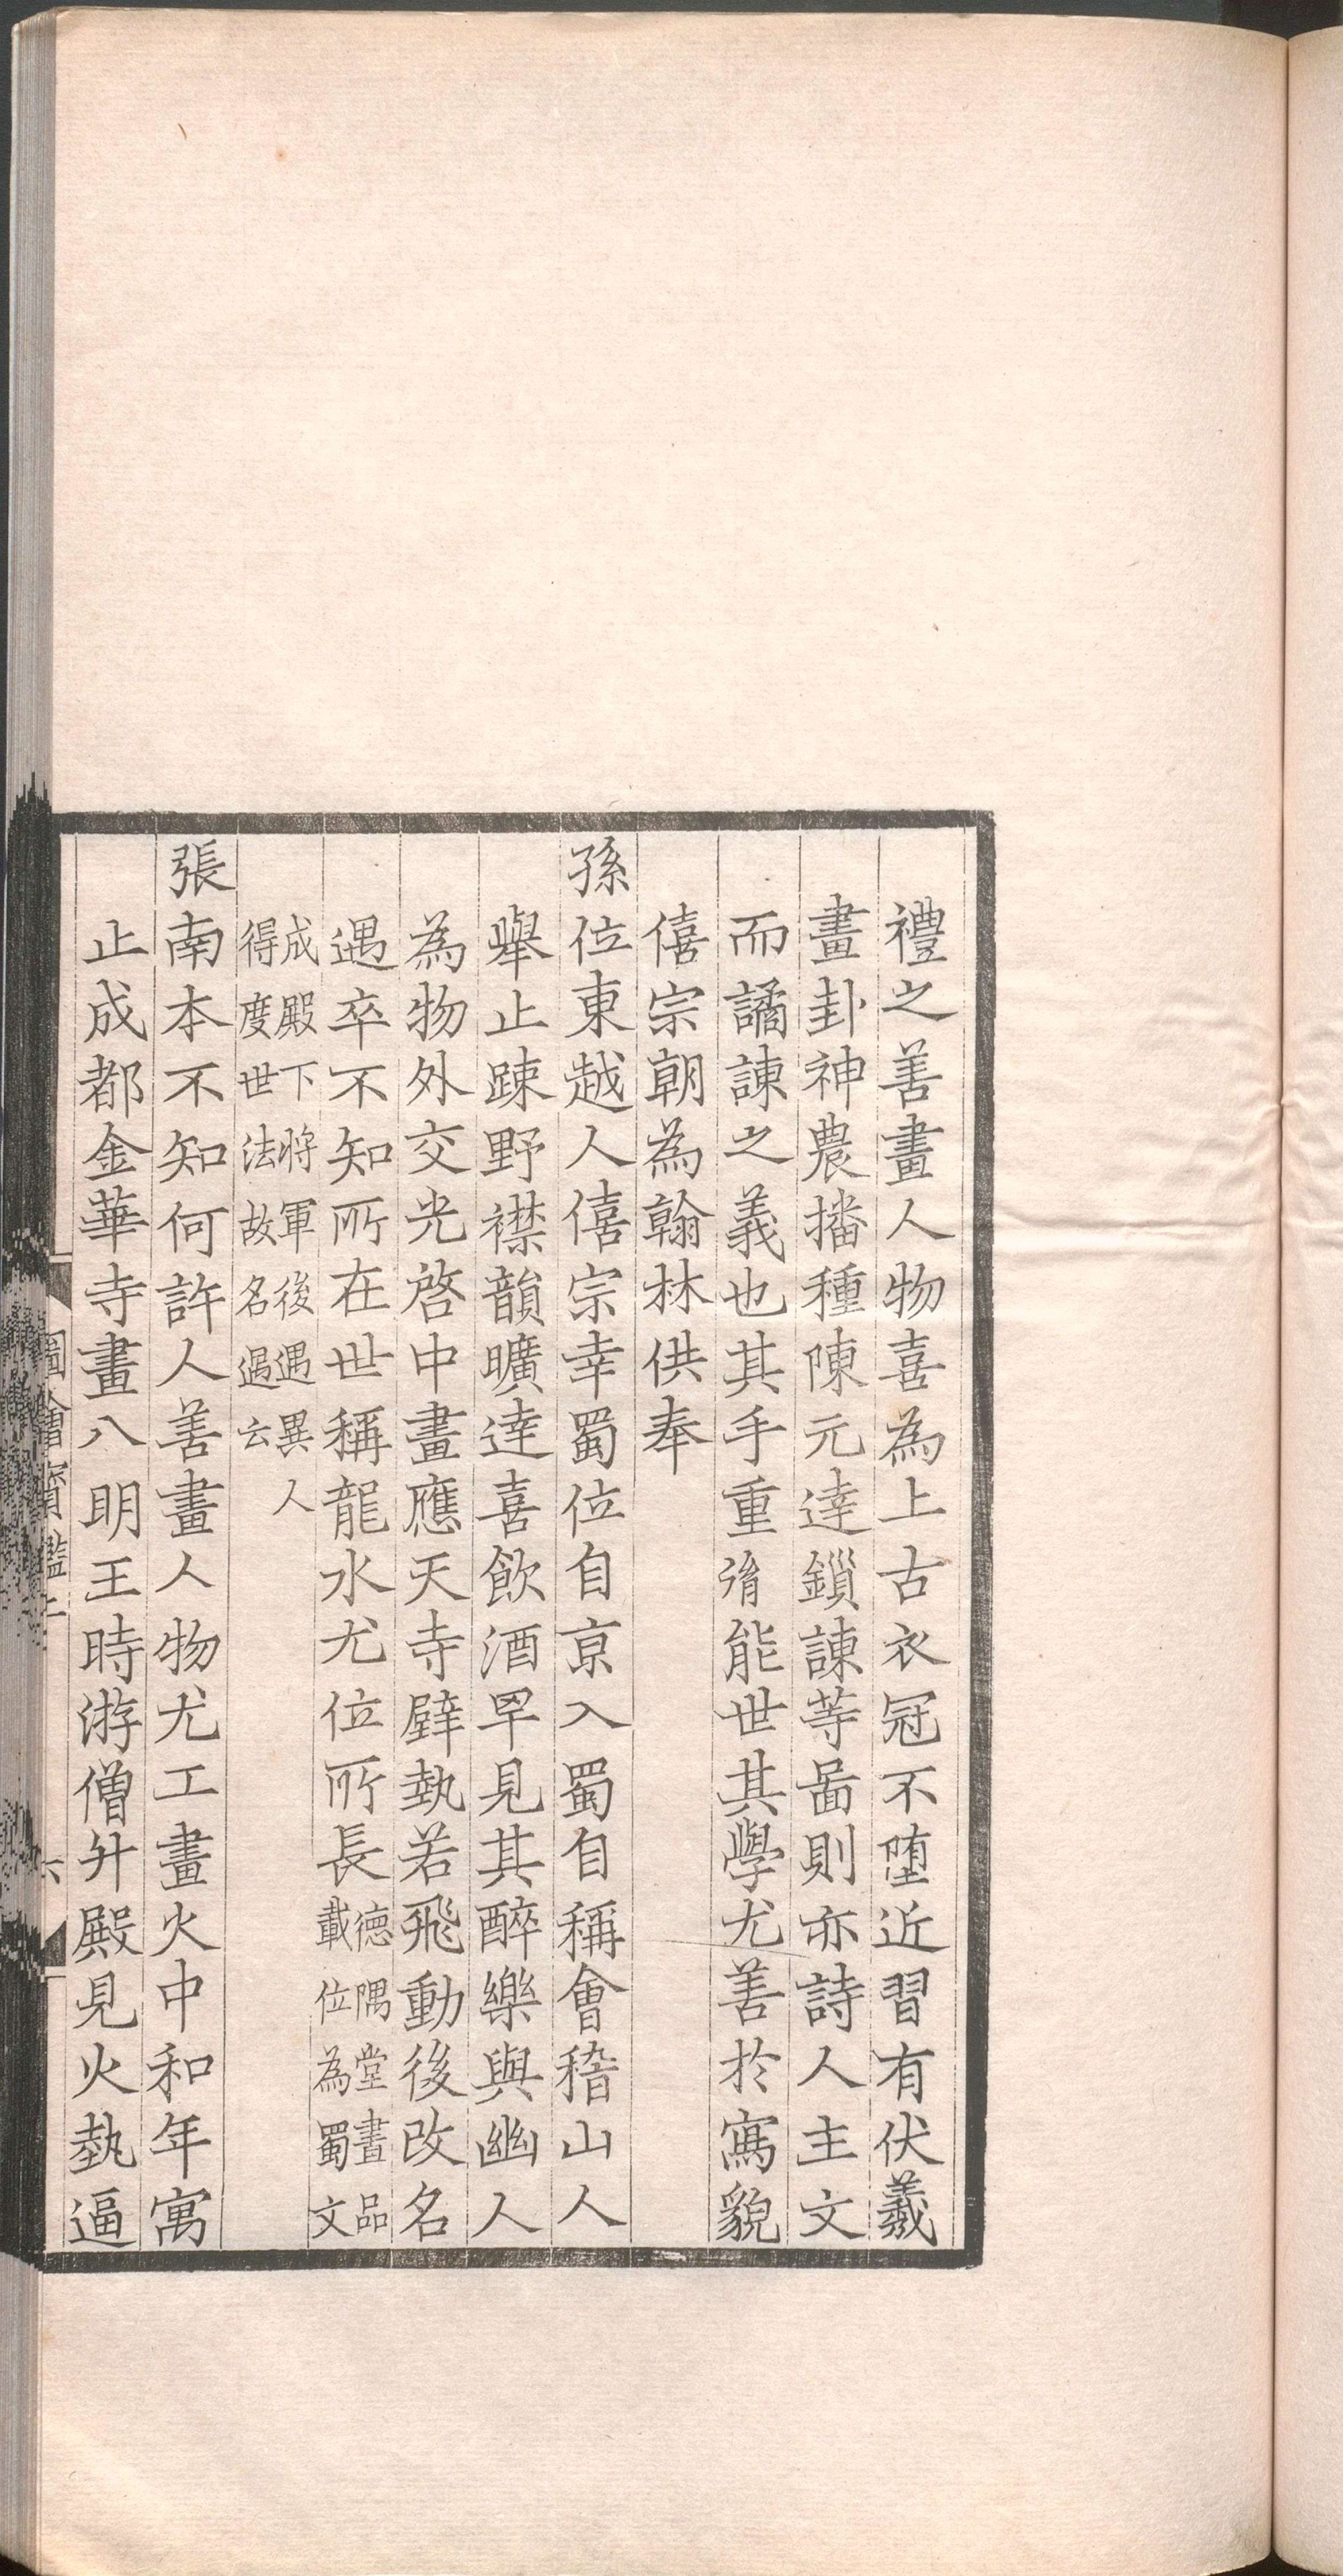 禮之善畫人物喜為上古衣冠不墮近習有伏羲
畫卦神農播種陳元達鎖諫等啚則亦詩人主文
而譎諫之義也其手重胤能世其學尤善於寫貌
僖宗朝為翰林供奉
孫位東越人僖宗幸蜀位自京入蜀自稱會稽山人
舉止踈野襟韻曠達喜飲酒罕見其醉樂與幽人
為物外交光啓中畫應天寺壁埶若飛動後改名
遇卒不知所在世稱龍水尤位所長德隅堂畫品
載位為蜀文
成殿下將軍後遇異人
得度世法故名遇云
張南本不知何許人善畫人物尤工畫火中和年寓
止成都金華寺畫八明王時游僧升殿見火埶逼
圖繪寶鑑二
六